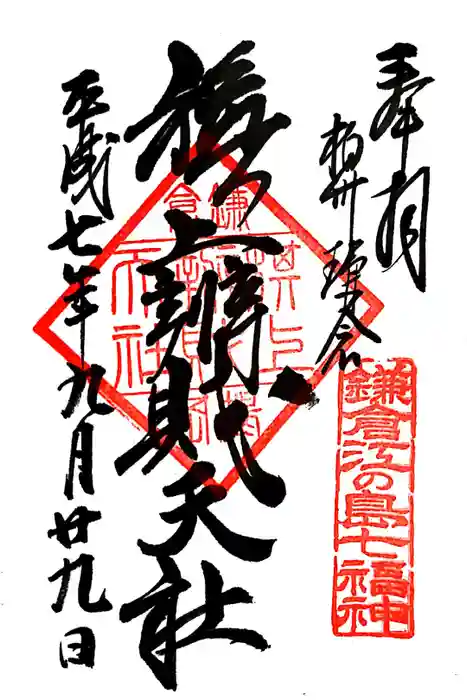 奉拝
相州 鎌倉
鎌倉江の島七福神
旗上辨財天社
平成七年九月廿九日